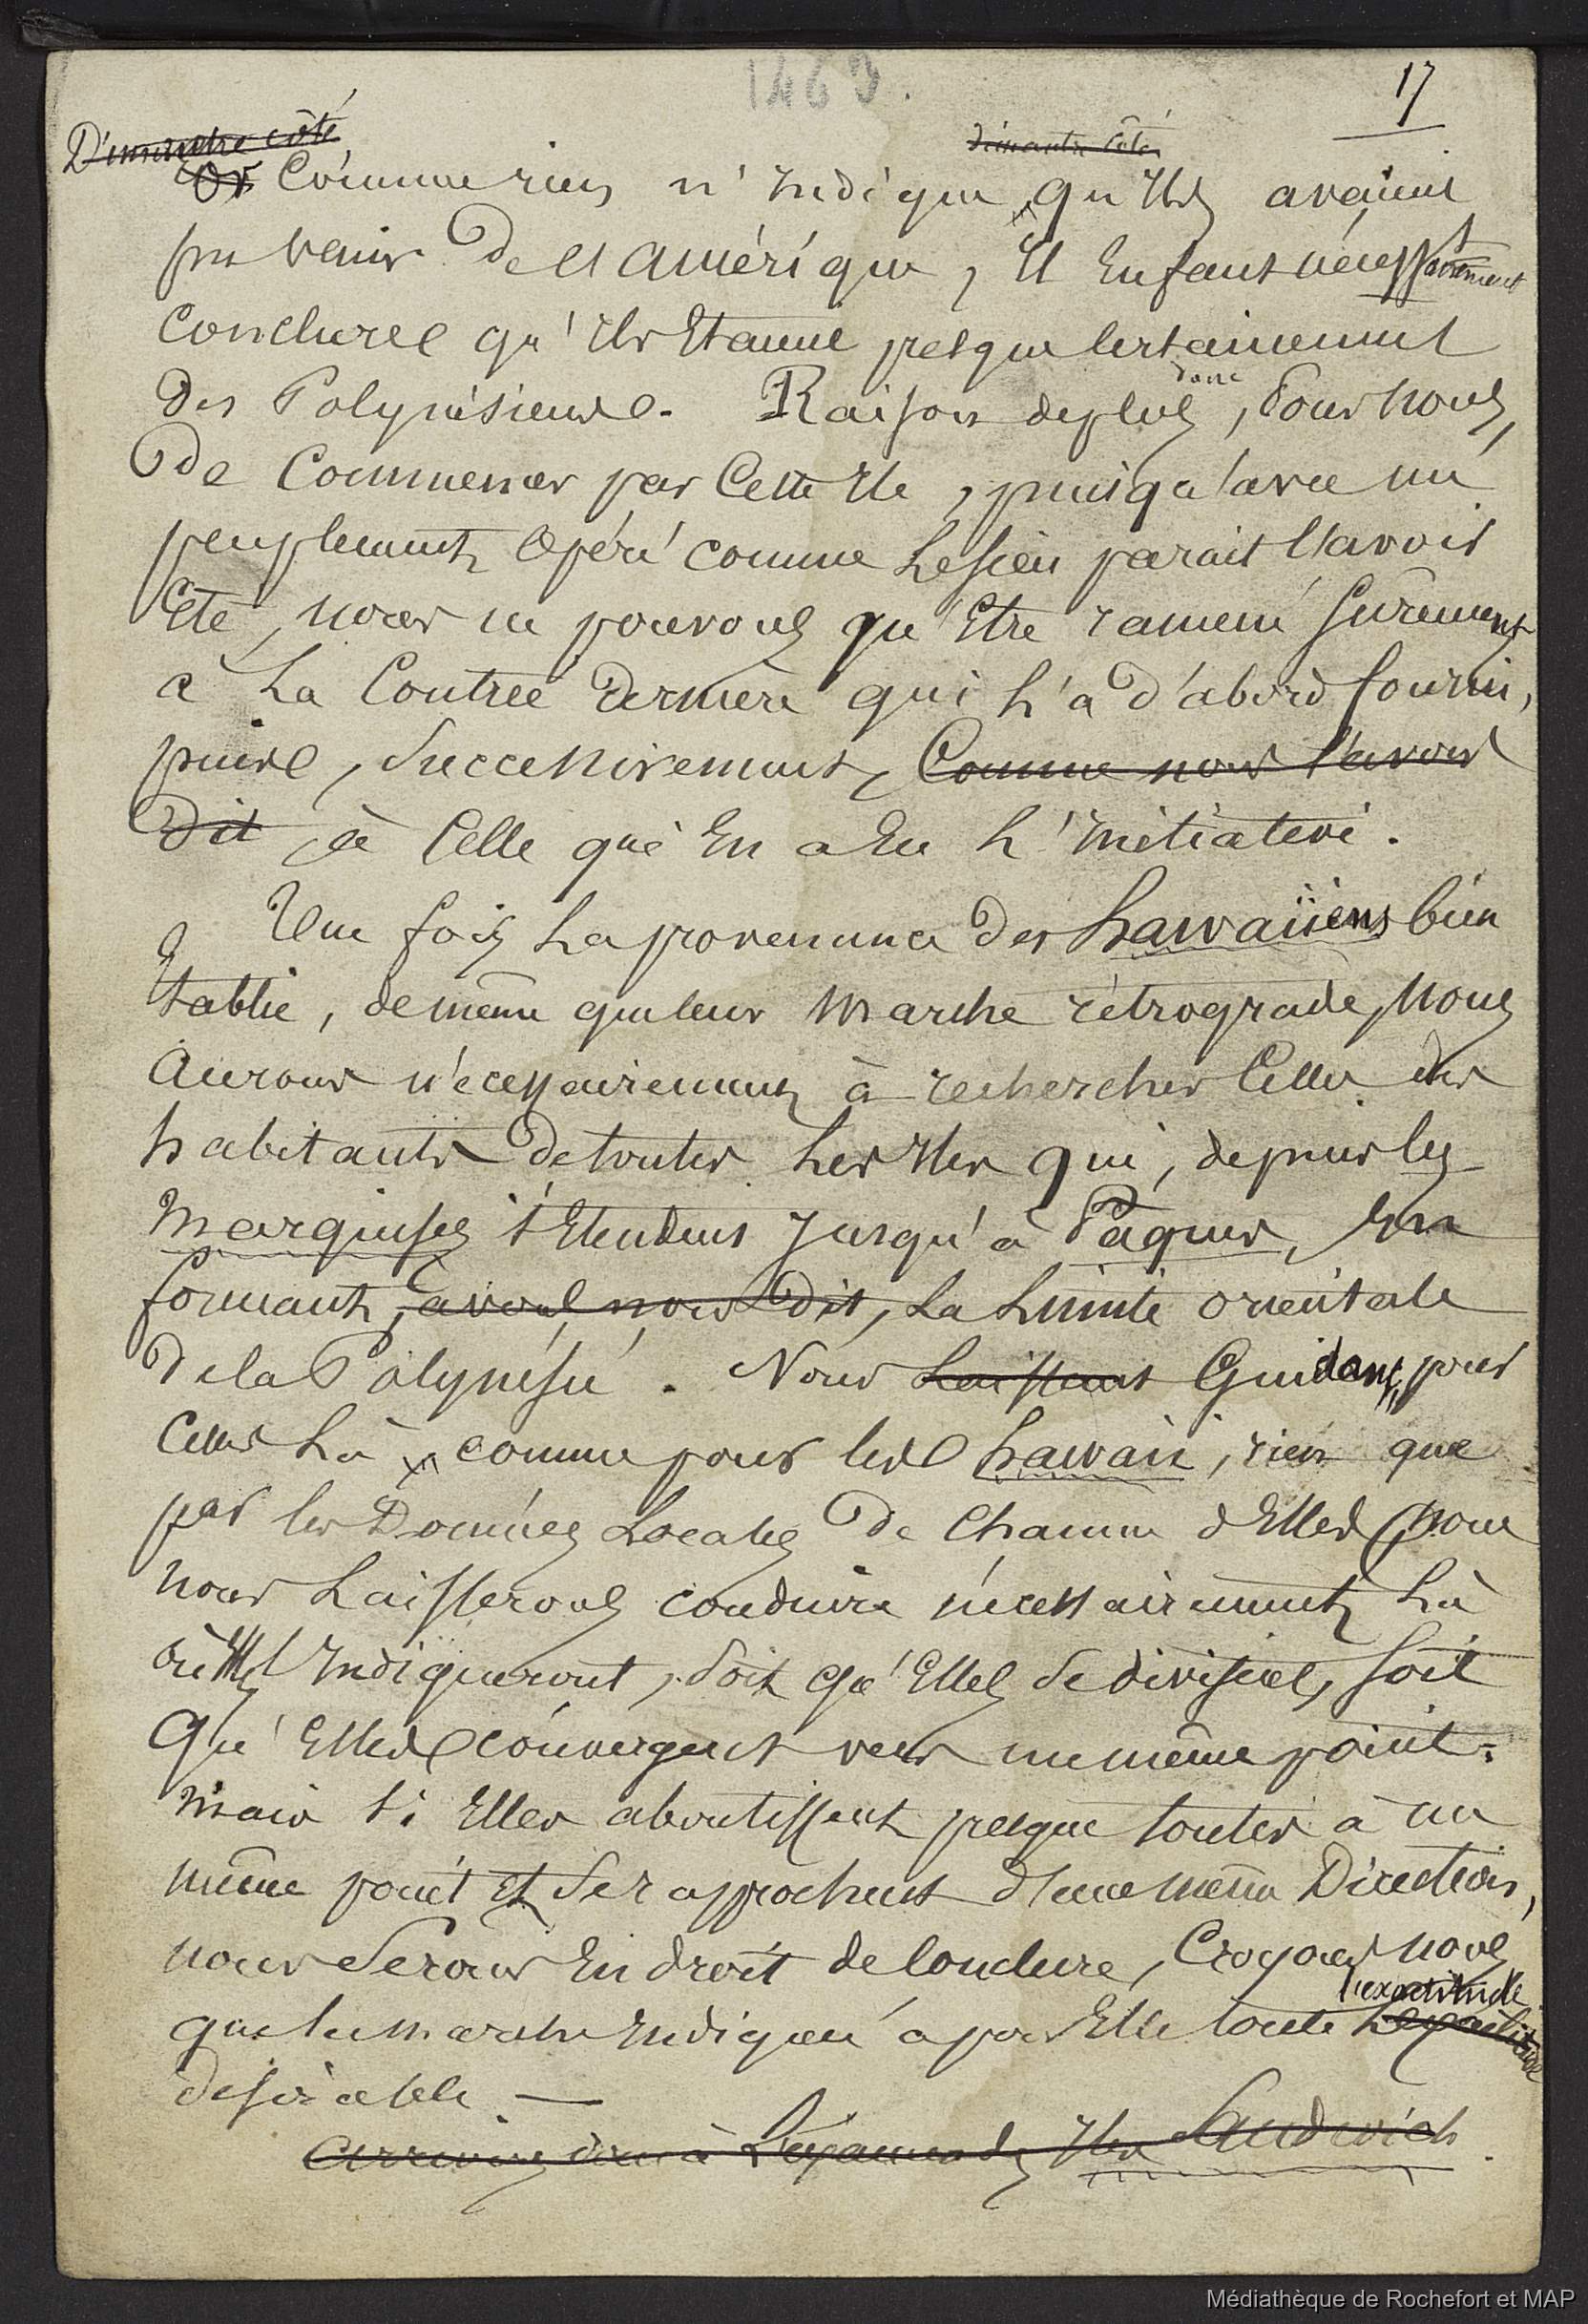 1463.
17
D'un autre côté
d'un autre côté
Or Comme rien n'indique qu'ils avaient
pu venir de l'Amérique, il En faut nécessairement
conclure qu'ils Etaient presque certainement
des Polynésiens. Raison de plus donc, pour nous,
de Commencer par Cette Ile, puisqu'avec un
peuplement Opéré comme le sien parait l'avoir
Eté, nous ne pouvons qu'Etre ramené surement
à la Contrée dernière qui l'a d'abord fourni,
puis, successivement, Comme nous l'avons
dit, à Celle qui En a Eu l'initiative.
Une fois la provenance des hawaiiens bien
Etablie, de même que leur marche rétrograde, Nous
Aurons nécessairement à rechercher Celle des
habitants de toutes les Iles qui, depuis les
Marquises s'Etendent jusqu'à Pâques, En
formant, avons nous dit, la limite orientale
de la Polynésie. Nous Laissant Guidant, pour
Celles là comme pour les hawaii, rien que
par les Données Locales de Chacune d'Elles, nous
nous Laisserons conduire nécessairement là
où Elles Indiqueront, soit qu'Elles se divisent, soit
Qu'Elles convergent vers un même point.
Mais si Elles aboutissent presque toutes à un
même point Et se rapprochent d'une même Direction,
nous Serons En droit de Conclure, Croyons nous
l'exactitude
que la marche Indiquée a pour Elle toute L'exactitude
désirable. —
Arrivons donc à L'examen des Iles Sandwich.
Médiathèque de Rochefort et MAP